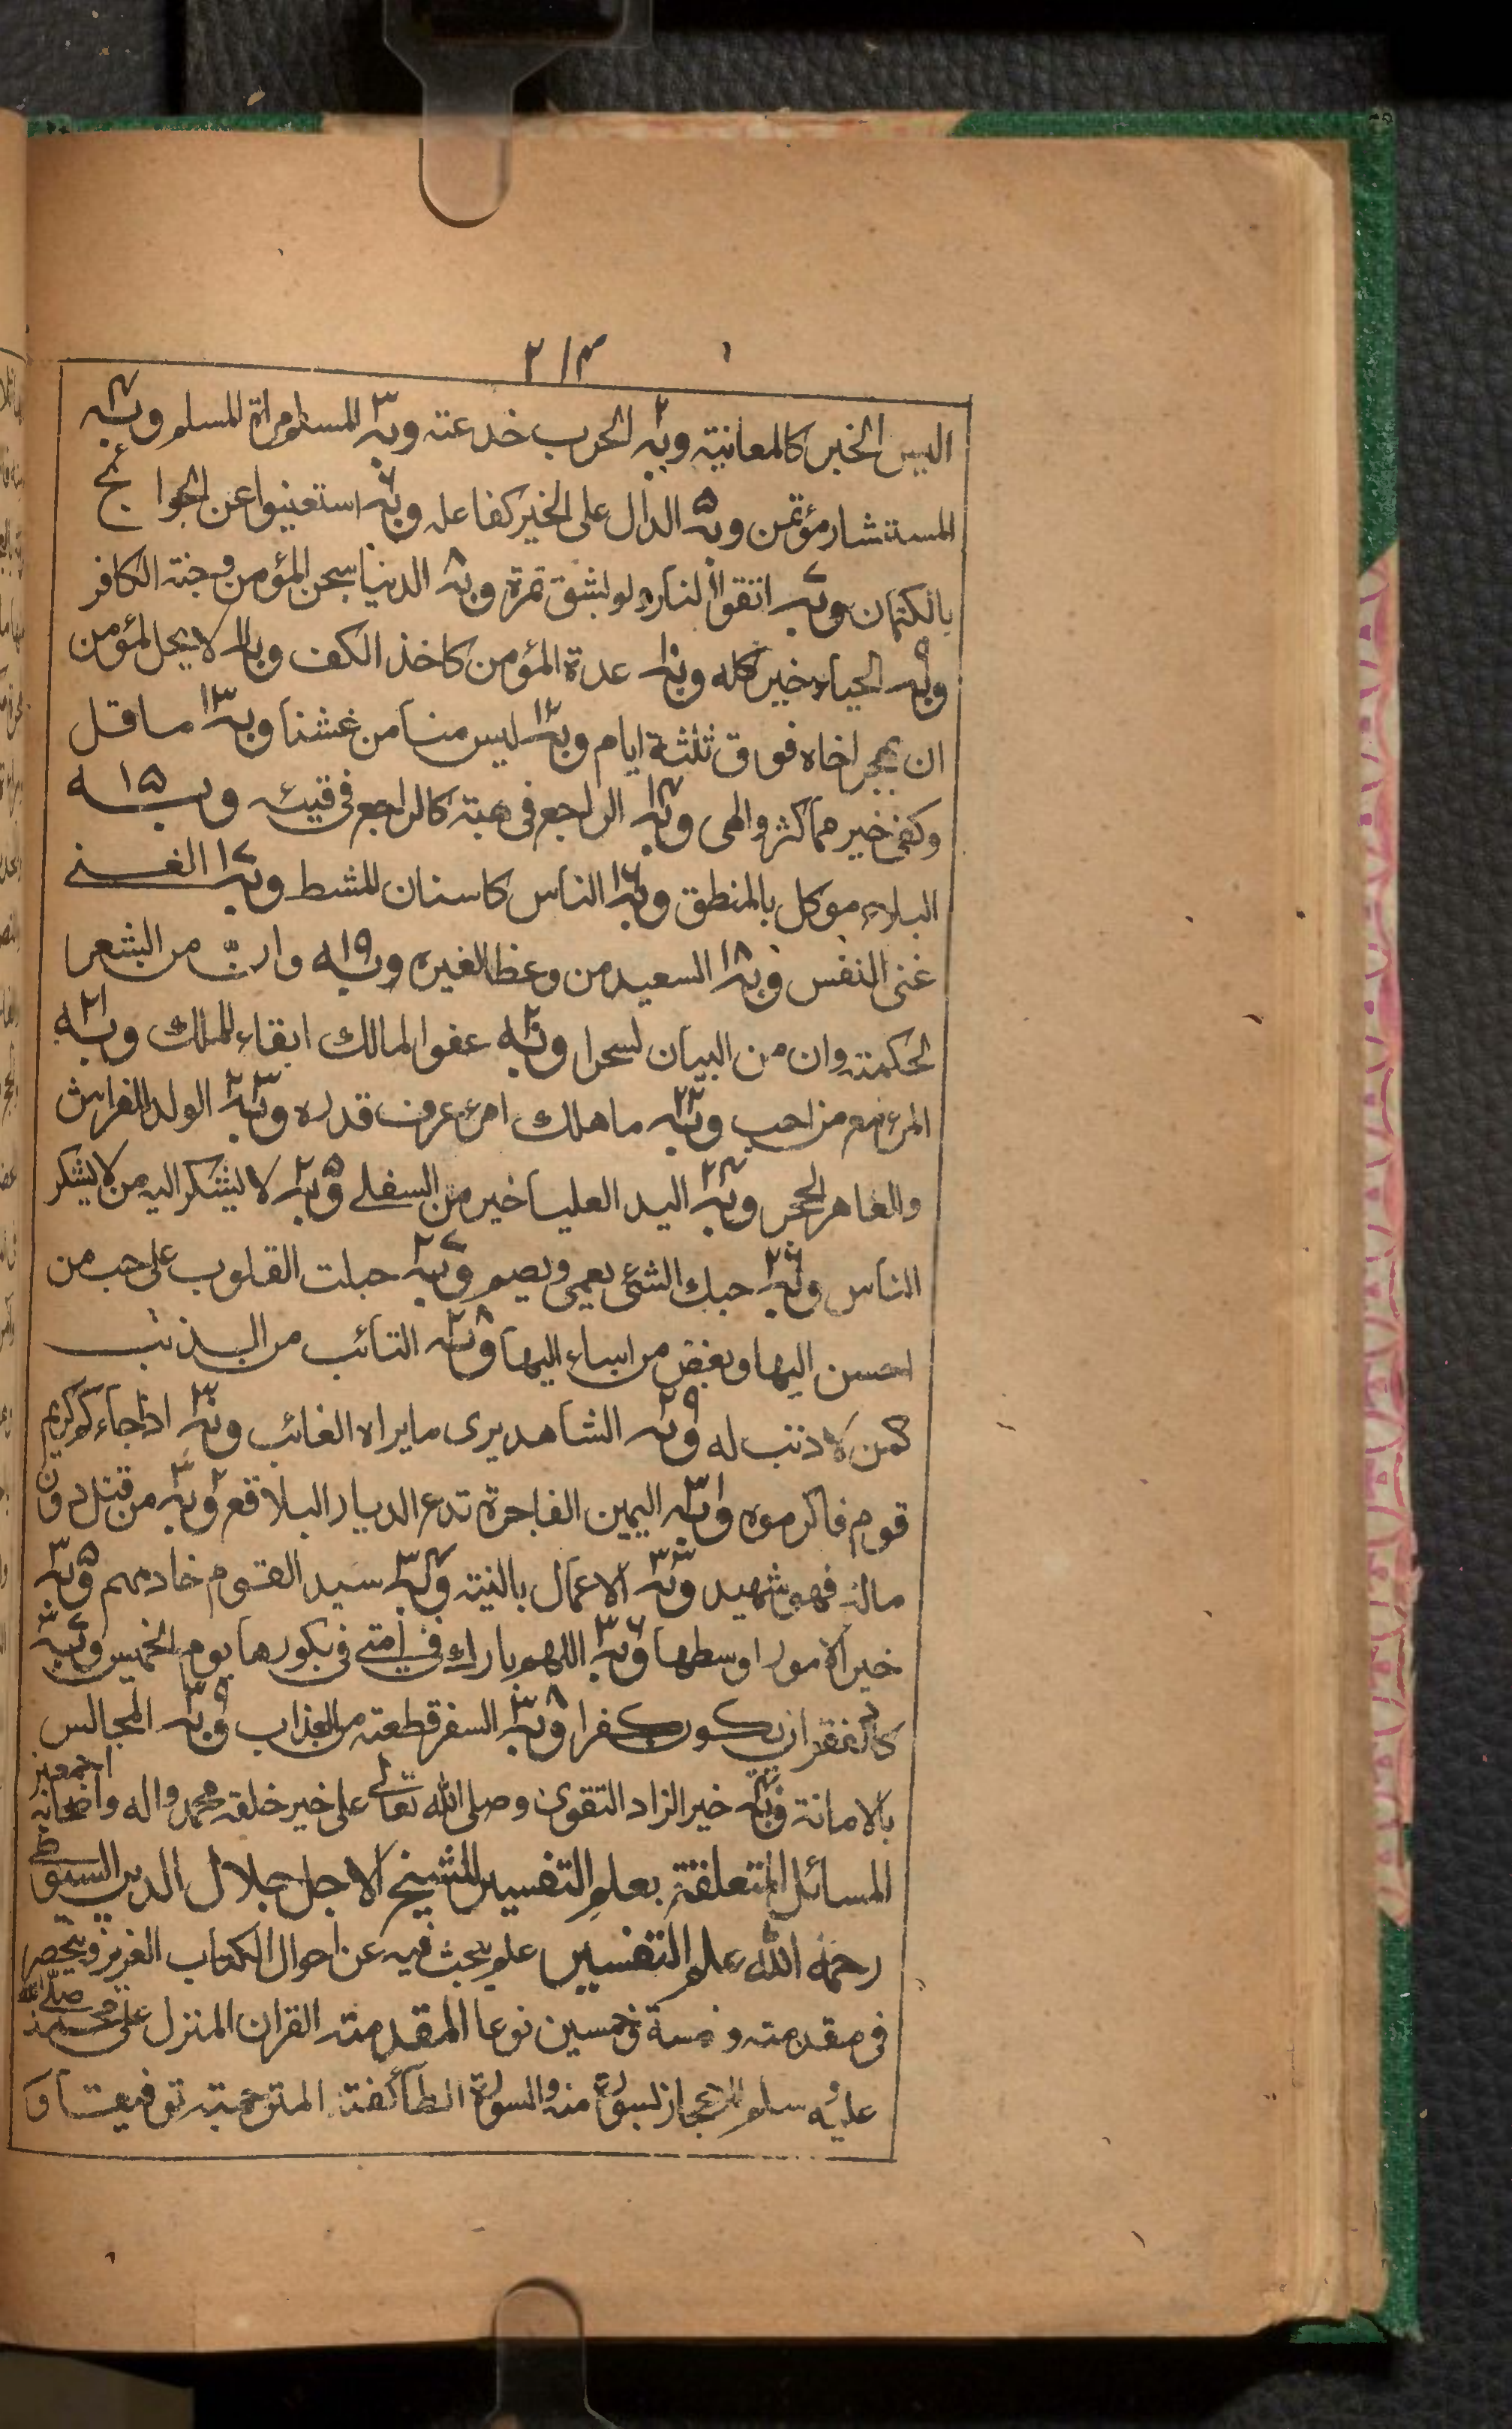 ٢١٣
اليس الخبر كالمعانية وبه٢ الحرب خدعته وبه٣ المسلم مراة المسلم وبه٤
المستشار مؤتمن وبه٥ الدال على الخير كفاعله وبه٦ استعينوا عن الحوائج
بالكتمان وبه٧ اتقوا النار ولو بشق تمرة وبه٨ الدنيا سجن المؤمن وجنته الكافر
وبه٩ الحياء خير كله وبه١٠ عدة المؤمن كاخذ الكف وبه١١ لا يحل لمؤمن
ان يهجر اخاه فوق ثلثة ايام وبه١٢ ليس منا من غشنا وبه١٣ ما قل
وكفى خير مما كثر والهى وبه١٤ الراجع فى هبته كالراجع فى قيئه وبه١٥
البلاء موكل بالمنطق وبه١٦ الناس كاسنان المشط وبه١٧ الغنى
غنى النفس وبه١٨ السعيد من وعظ الغيره وبه١٩ وانّ من الشعر
الحكمته وان من البيان لسحرا وبه٢٠ عفو المالك ابقاء للملك وبه٢١
المرء مع من احب وبه٢٢ ما هلك امرء عرف قدره وبه٢٣ الولد للفراش
والعاهر الحجر وبه٢٤ اليد العليا خير من السفلى وبه٢٥ لا يشكر اليه من لا يشكر
الناس وبه٢٦ حبك الشئ يعمى ويصم وبه٢٧ جبلت القلوب على حب من
احسن اليها وبغض من اساء اليها وبه٢٨ التائب من الذنب
كمن لا ذنب له وبه٢٩ الشاهد يرى ما يراه الغائب وبه٣٠ اذا جاءكم كريم
قوم فاكرموه وبه٣١ اليمين الفاجرة تدع الديار البلاقع وبه٣٢ من قتل دون
ماله فهو شهيد وبه٣٣ الاعمال بالنيته وبه٣٤ سيد القوم خادمهم وبه٣٥
خير الامور اوسطها وبه٣٦ اللهم بارك فى امتى فى بكورها يوم الخميس وبه٣٧
كاد الفقر ان يكون كفرا وبه٣٨ السفر قطعته من العذاب وبه٣٩ المجالس
بالامانة وبه٤٠ خير الزاد التقوى وصلى الله تعالى على خير خلقه محمد واله واصحابه اجمعين
المسائل المتعلقة بعلم التفسير للشيخ الاجل جلال الدين السيوطى
رحمه الله علم التفسير علم يبحث فيه عن احوال الكتاب العزيز وينحصر
فى مقدمته وخمسة وخمسين نوعا المقدمته القران المنزل على محمد صلى الله
عليه وسلم للاعجاز بسورة منه والسورة الطائفة المترجمته توقيفا و